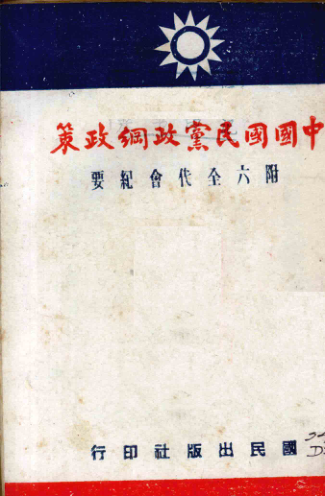 中國國民黨政綱政策
附六全代會紀要
國民出版社印行